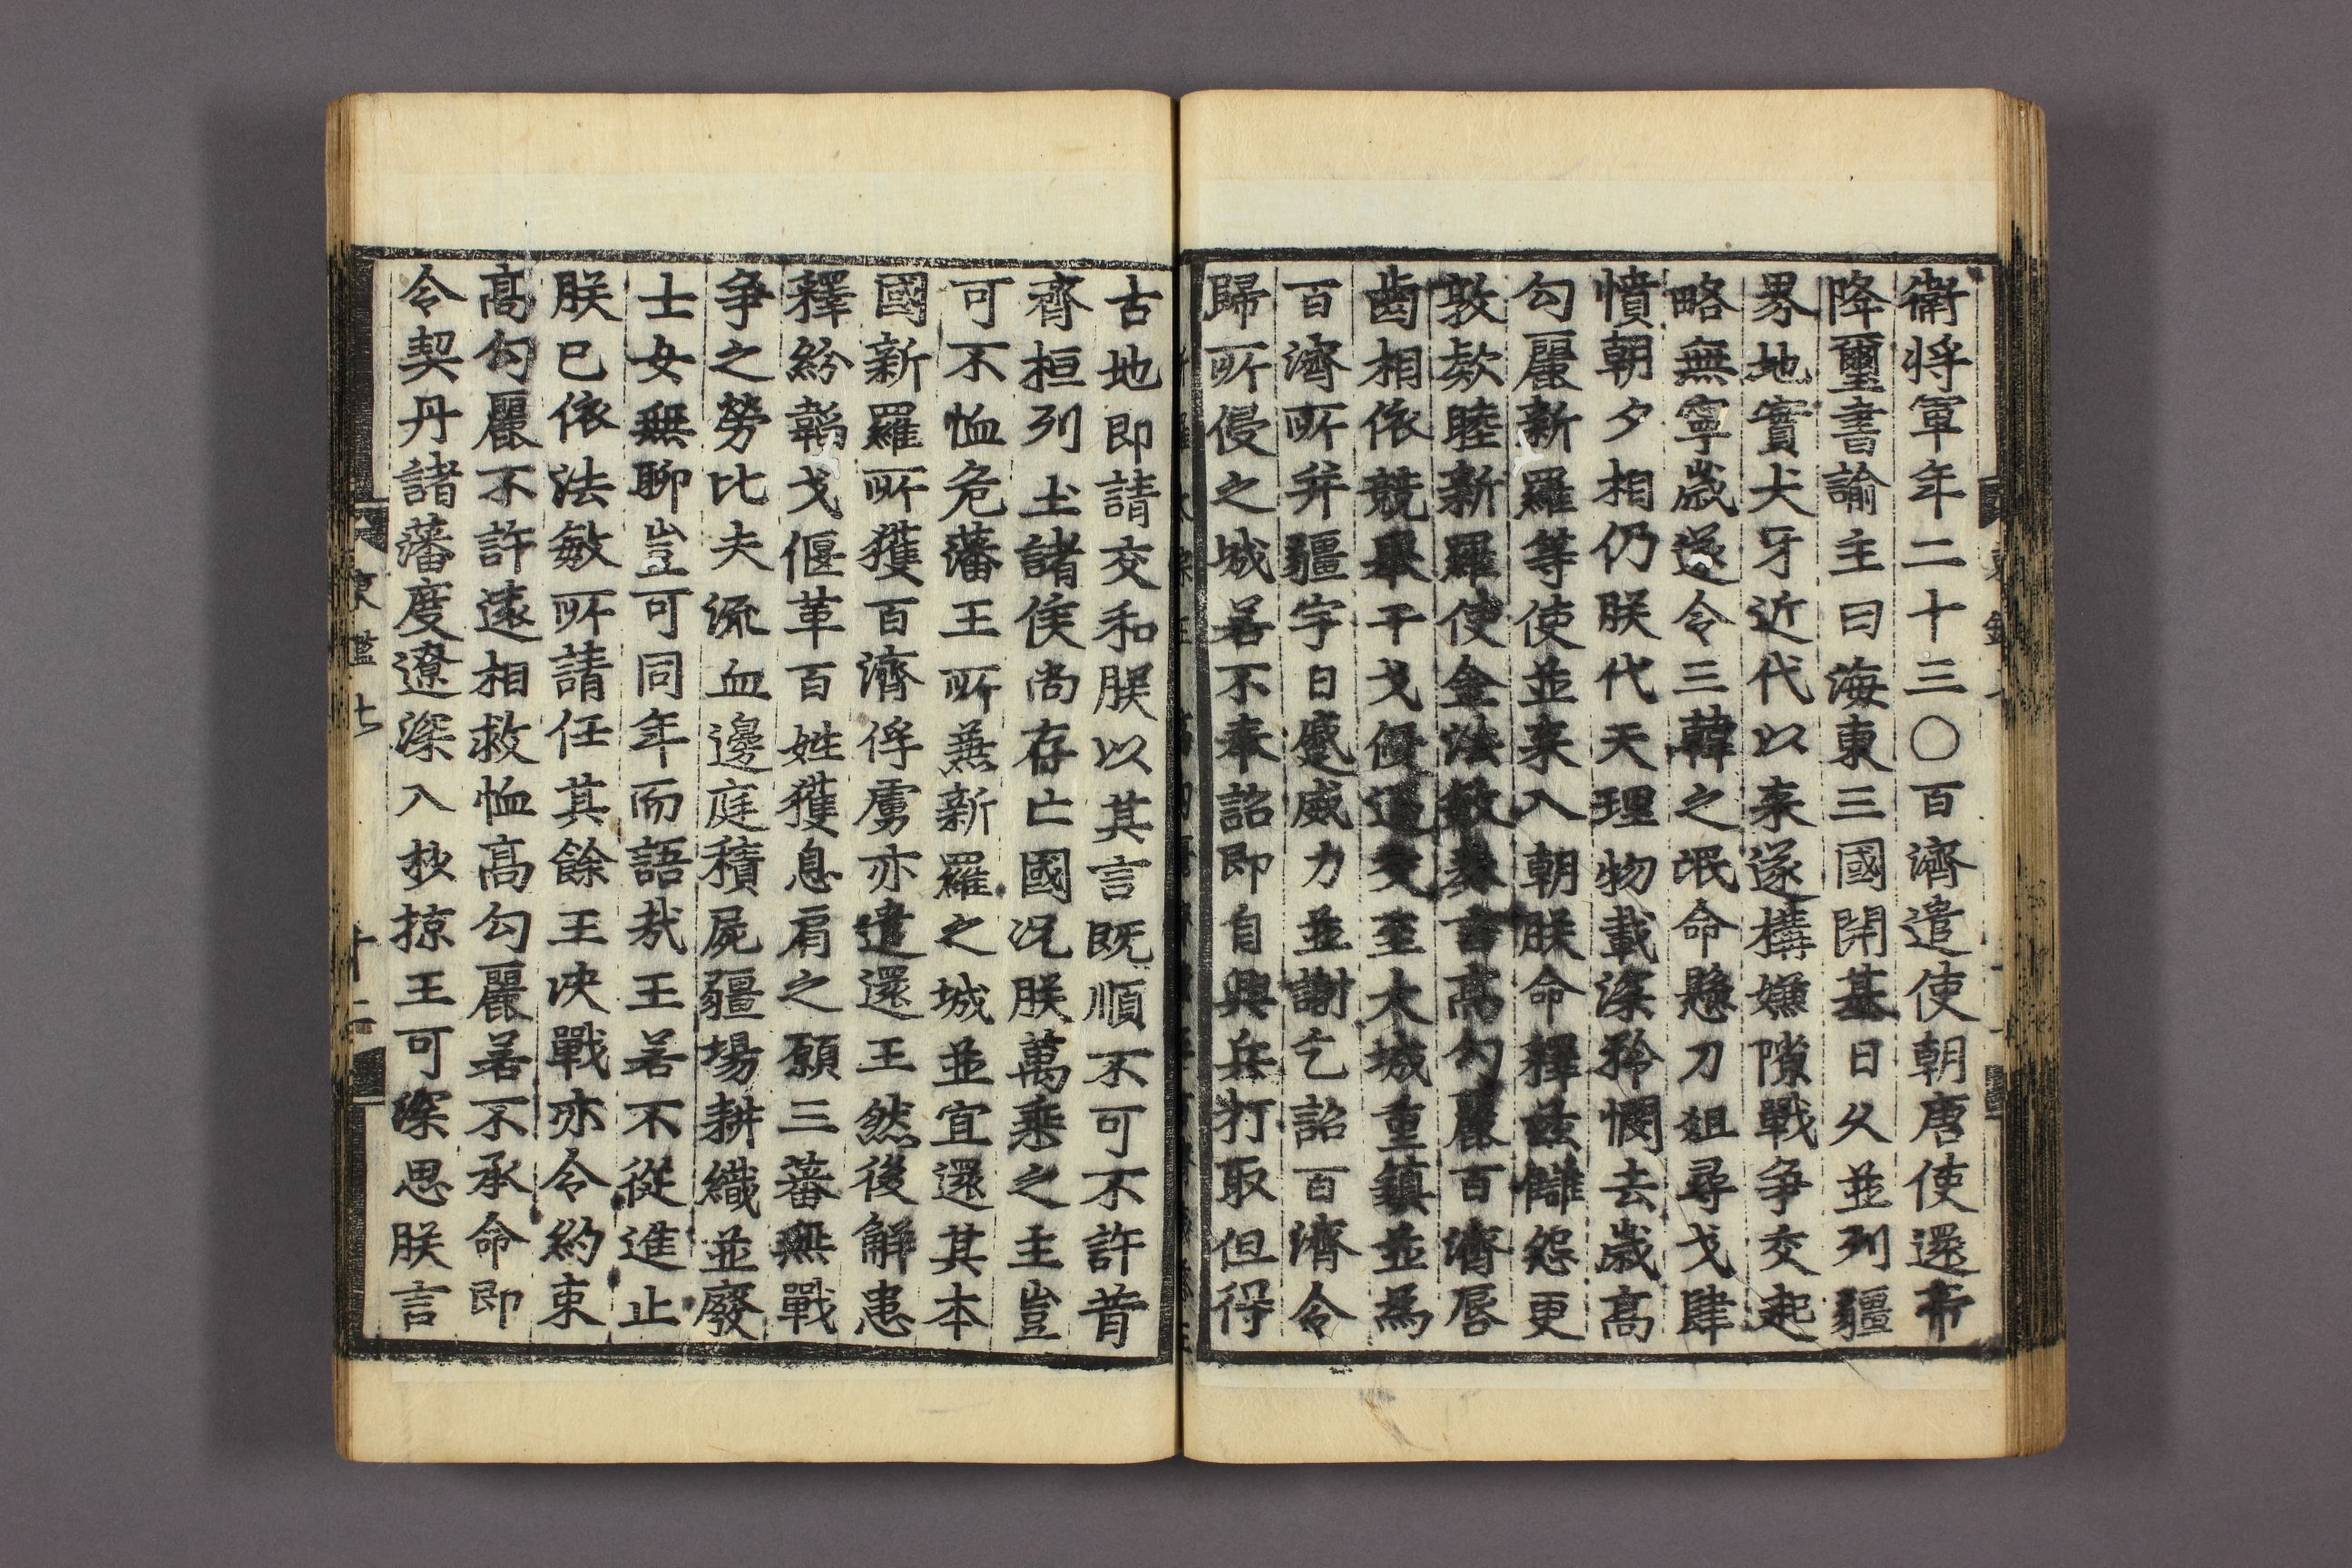 衛將軍年二十三〇百濟遣使朝唐使還帝
降璽書諭主曰海東三國開基日久並列疆
界地實犬牙近代以来遂搆嫌隙戰爭交起
略無寧歲遂令三韓之氓命懸刀俎尋戈肆
憤朝夕相仍朕代天理物載深矜憫去歲高
勾麗新羅等使並来入朝朕命釋玆讎怨更
敦款睦新羅使金法敏奏言高勾麗百濟唇
齒相依競擧干戈侵逼交至大城重鎮並為
百濟所并疆宇日蹙威力並謝乞詔百濟令
歸所侵之城若不奉詔即自興兵打取但得
古地即請交和朕以其言既順不可不許昔
齊桓列土諸侯尚存亡國况朕萬乘之主豈
可不恤危藩王所兼新羅之城並宜還其本
國新羅所獲百濟俘虜亦遣還王然後解患
釋紛韜戈偃革百姓獲息肩之願三蕃無戰
爭之勞比夫流血邊庭積屍疆場耕織並廢
士女無聊豈可同年而語㢤王若不從進止
朕已依法敏所請任其餘王决戰亦令約束
高勾麗不許遠相救恤高勾麗若不承命即
令契丹諸藩度遼深入抄掠王可深思朕言
東鑑七
十二